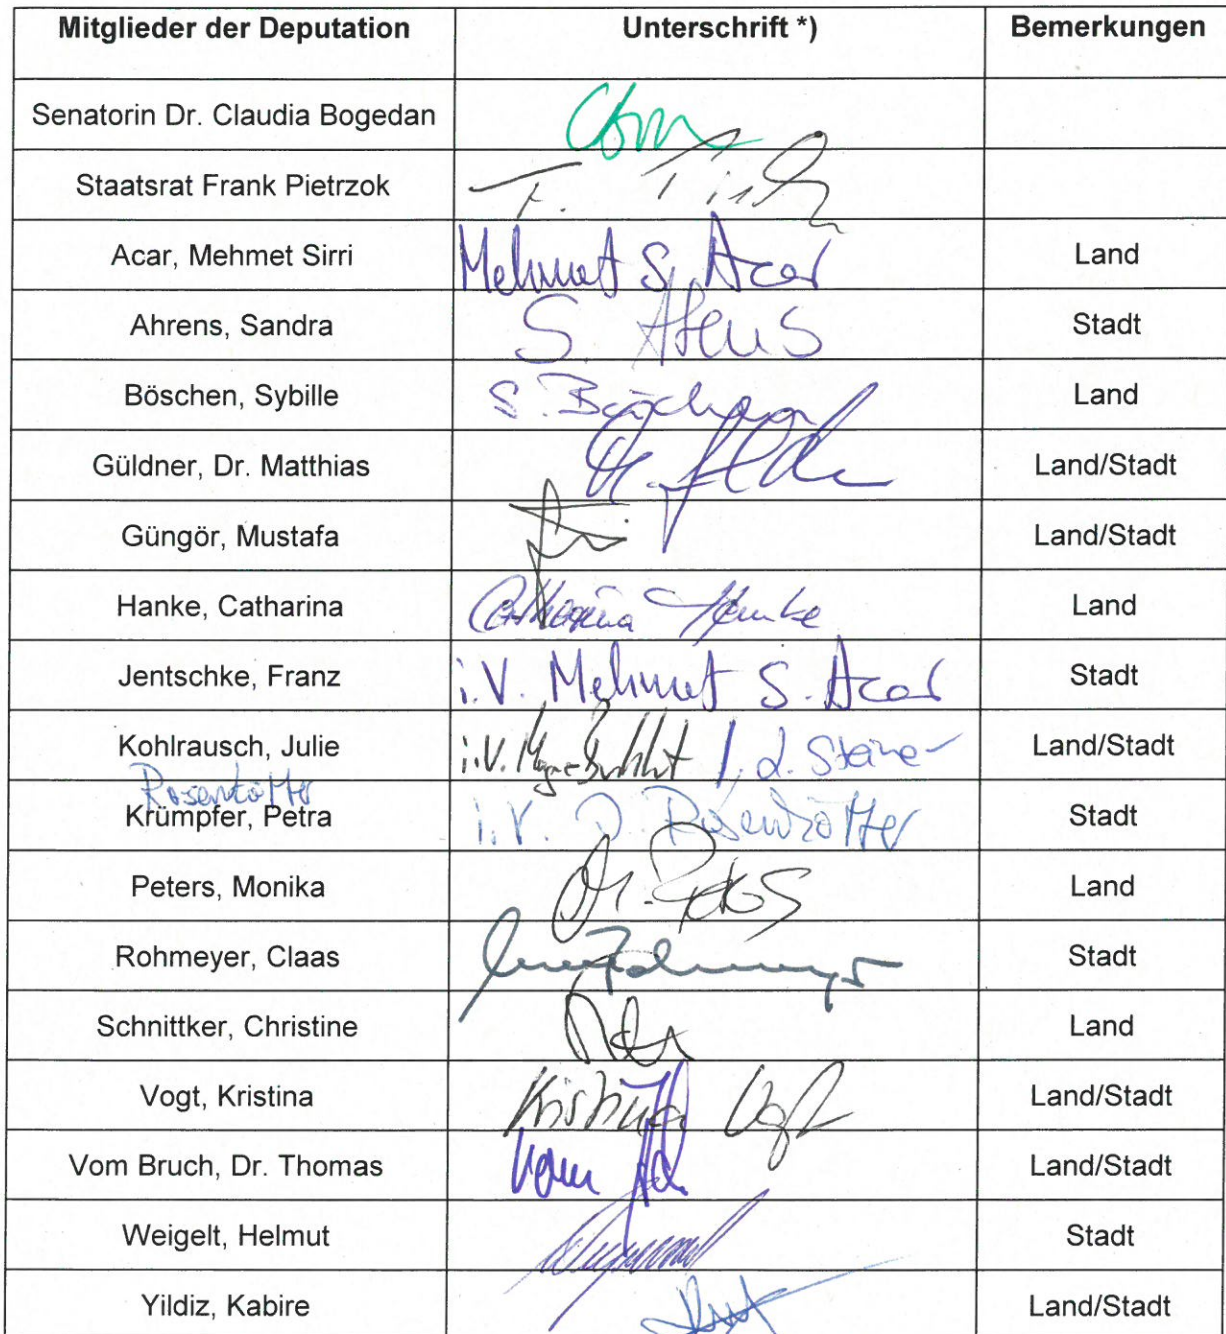 Mitglieder der Deputation Unterschrift *) Bemerkungen
Senatorin Dr. Claudia Bogedan
Staatsrat Frank Pietrzok F.
Acar, Mehmet Sirri Mehmet S. Acar Land
Ahrens, Sandra S. Ahrens Stadt
Böschen, Sybille S. Böschen Land
Güldner, Dr. Matthias Land/Stadt
Güngör, Mustafa Land/Stadt
Hanke, Catharina Catharina Hanke Land
Jentschke, Franz i.V. Mehmet S. Acar Stadt
Kohlrausch, Julie i.V. Steiner Land/Stadt
Rosenkötter
Krümpfer, Petra i.V. D. Rosenkötter Stadt
Peters, Monika M. Peters Land
Rohmeyer, Claas Claas Rohmeyer Stadt
Schnittker, Christine Land
Vogt, Kristina Kristina Vogt Land/Stadt
Vom Bruch, Dr. Thomas vom Land/Stadt
Weigelt, Helmut Stadt
Yildiz, Kabire Land/Stadt